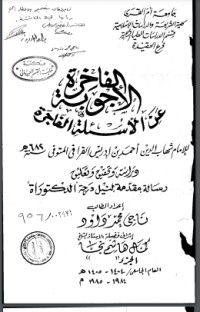 جامعة أم القرى
كلية الشريعة والدراسات الإسلامية
قسم الدراسات العليا الشرعية
فرع العقيدة
الأجوبة الفاخرة
عن الأسئلة الفاجرة
للإمام شهاب الدين أحمد بن إدريس القرافي المتوفى ٦٨٤هـ
دراسة وتحقيق وتعليق
رسالة مقدمة لنيل درجة الدكتوراة
إعداد الطالب
ناجي محمد داود
إشراف فضيلة الأستاذ الدكتور
كمال هاشم نجا
العام الجامعي ١٤٠٤ - ١٤٠٥ هـ
١٩٨٤ - ١٩٨٥ م